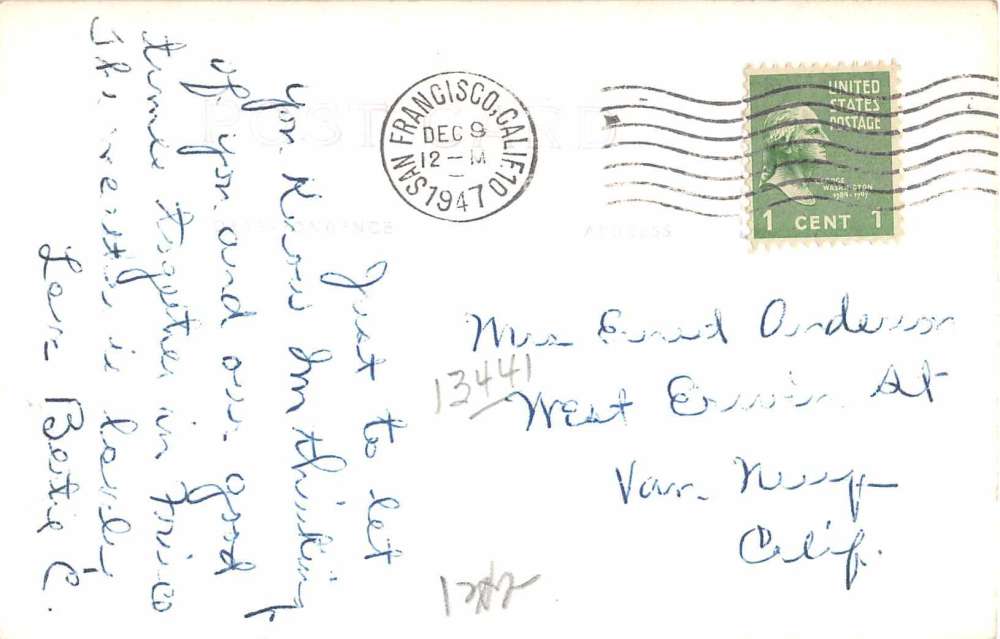 POST CARD
CORRESPONDENCE
ADDRESS
SAN FRANCISCO, CALIF. 10
DEC 9
12 – M
1947
UNITED
STATES
POSTAGE
GEORGE
WASHINGTON
1789-1797
1 CENT 1
Just to let
you know Im thinking
of you and our good
times together in Frisco
The weather is lovely
Love Bertie C.
Mrs Enid Anderson
13441
West Erwin St
Van Nuys
Calif.